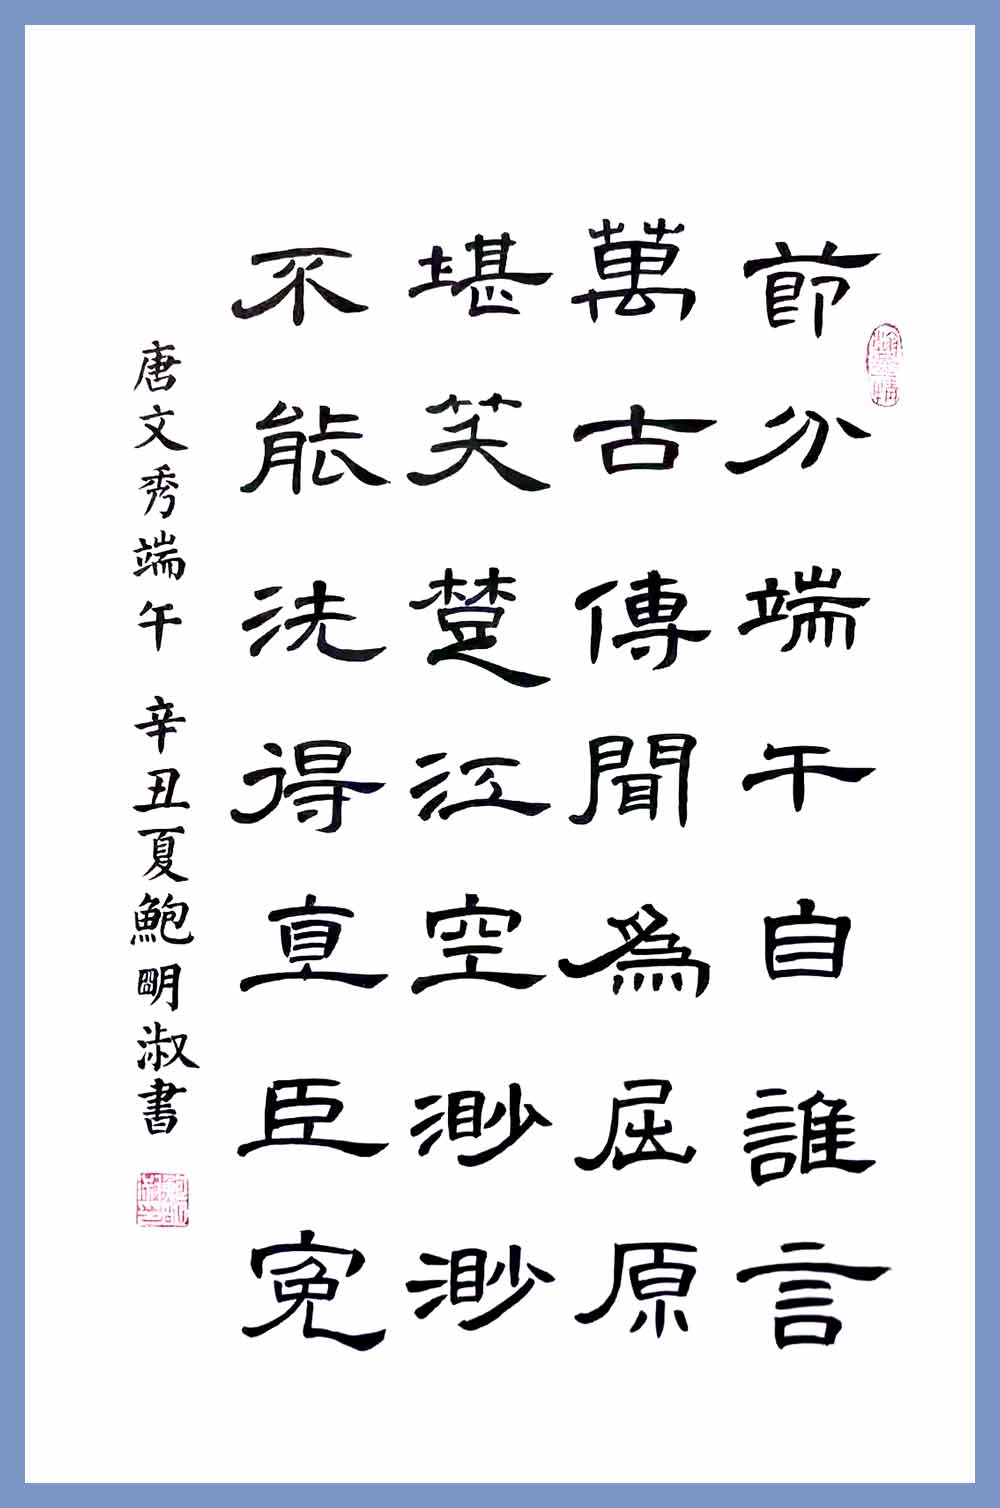 節分端午自誰言
萬古傳聞為屈原
堪笑楚江空渺渺
不能洗得直臣冤
唐文秀端午 辛丑夏鮑明淑書